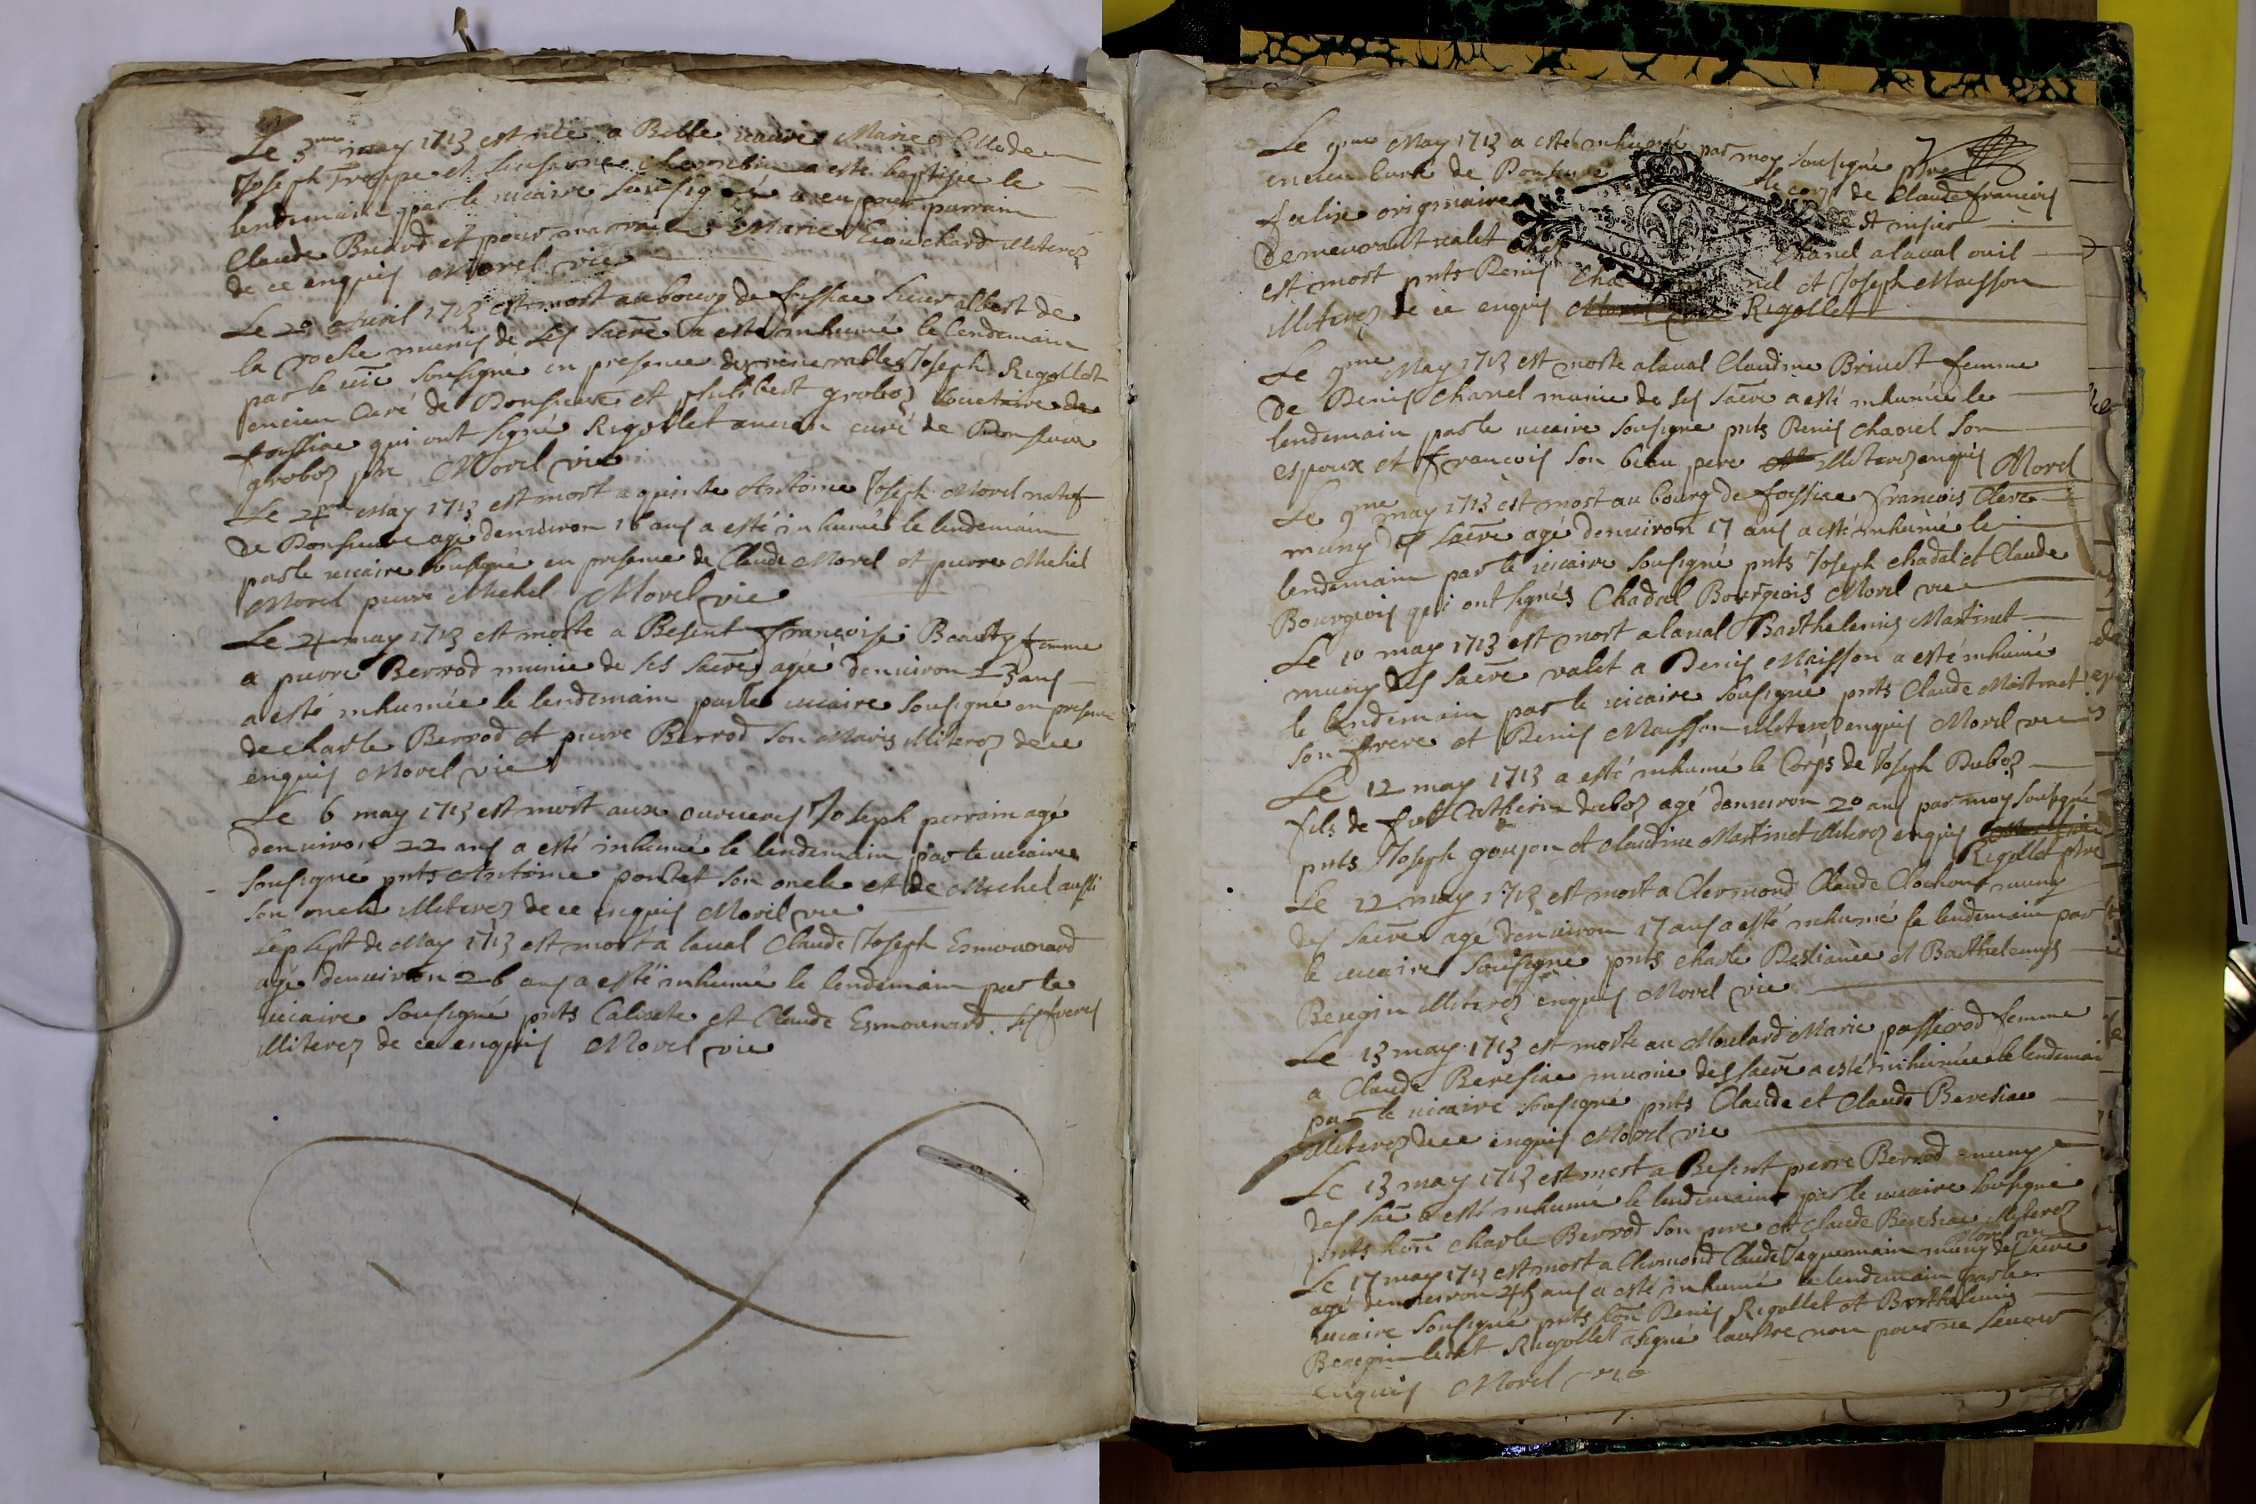 Le 3me may 1713 est née a Belle vaivre Marie fille de
Joseph Froppe et Susanne a esté baptisée le
lendemain par le vicaire sousigné a eu pour parrain
Claude Berrod et pour marraine Marie illiterez
de ce enquis Morel vic
Le 20 avril 1713 est mort au bourg de foissiac Sieur albert de
la roche munis de ses sacre a esté inhumé le lendemain
par le vic sousigné en presence des venerables Joseph Rigollet
ancien Curé de Donsieure et philibert groboz de
foissiac qui ont signé Rigollet ancien curé de Donsieur
groboz ptre Morel vic
Le may 1713 est mort a Antoine Joseph Morel natif
de Donsieure agé denviron 16 ans a esté inhumé le lendemain
par le vicaire sousigné en presence de Claude Morel et pierre Michel
Morel pierre Michel Morel vic
Le 4 may 1713 est morte a Besent françoise femme
a pierre Berrod munie de ses sacre agée denviron 23 ans
a esté inhumée le lendemain par le vicaire sousigné en presence
de charle Berrod et pierre Berrod son Maris illiterez de ce
enquis Morel vic
Le 6 may 1713 est mort aux Joseph perrain agé
denviron 22 ans a esté inhumé le lendemain par le vicaire
sousigné pnts Antoine son oncle et de Michel aussi
son oncle illiterez de ce enquis Morel vic
Le sept de May 1713 est mort a laval Claude Joseph Esmonnard
agé denviron 26 ans a esté inhumé le lendemain par le
vicaire sousigné pnts Calixte et Claude Esmonnard ses freres
illiterez de ce enquis Morel vic
7
Le 9me May 1713 a esté inhumé par moy sousigné ptre
encien Curé de Donsieure le corps de Claude francois
felix originaire de et
demeurant valet chez Chanel a laval ou il
est mort pnts Denis Chanel et Joseph Maisson
illiterez de ce enquis Rigollet
Le 9me May 1713 est morte a laval Claudine femme
de Denis Chanel munie de ses sacre a esté inhumée le
lendemain par le vicaire sousigné pnts Denis Chanel son
espoux et francois son beau pere illiterez enquis Morel
Le 9me may 1713 est mort au bourg de foissiac francois Clerc
muny des sacre agé denviron 17 ans a esté inhumé le
lendemain par le vicaire sousigné pnts Joseph chadal et Claude
Bourgeois qui ont signés Chadal Bourgeois Morel vic
Le 10 may 1713 est mort a laval Barthelemis Martinet
muny des sacre valet a Denis Maisson a esté inhumé
le lendemain par le vicaire sousigné pnts Claude
son frere et Denis Maisson illiterez enquis Morel vic
Le 12 may 1713 a esté inhumé le Corps de Joseph Duboz
fils de duboz agé denviron 20 ans par moy sousigné
pnts Joseph goujon et claudine Martinet illiterez enquis
Rigollet ptre
Le 12 may 1713 est mort a Clermond Claude Clochon muny
des sacre agé denviron 17 ans a esté inhumé le lendemain par
le vicaire sousigné pnts charle et Barthelemy
Beregin illiterez enquis Morel vic
Le 13 may 1713 est morte au Moulard Marie passerod femme
a Claude Beresiac munie des sacre a esté inhumée le lendemain
par le vicaire sousigné pnts Claude et Claude Beresiac
illiterez de ce enquis Morel vic
Le 13 may 1713 est mort a Besent pierre Berrod muny
des sac a esté inhumé le lendemain par le vicaire sousigné
pnts hon charle Berrod son pere et claude Beresiac illiterez
Morel vic
Le 17 may 1713 est mort a Clermond Claude Jaquemain muny des sacre
agé denviron 45 ans a esté inhumé le lendemain par le
vicaire sousigné pnts hon Denis Rigollet et Barthelemis
Beregin ledit Rigollet a signé lautre non pour ne scavoir
enquis Morel vic